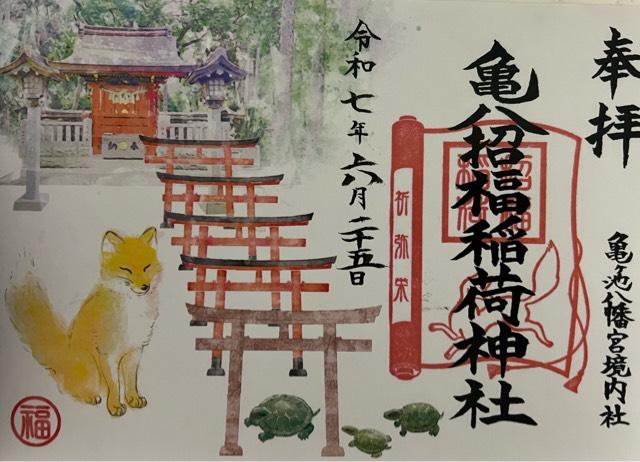 奉拝
亀池八幡宮境内社
亀八招福稲荷神社
招福
稲荷
祈弥栄
令和七年六月二十五日
福